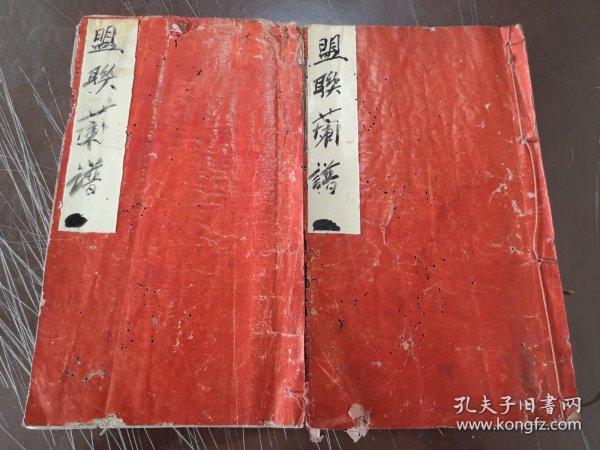 盟聯蘭譜
盟聯蘭譜
孔夫子旧书网
www.kongfz.com